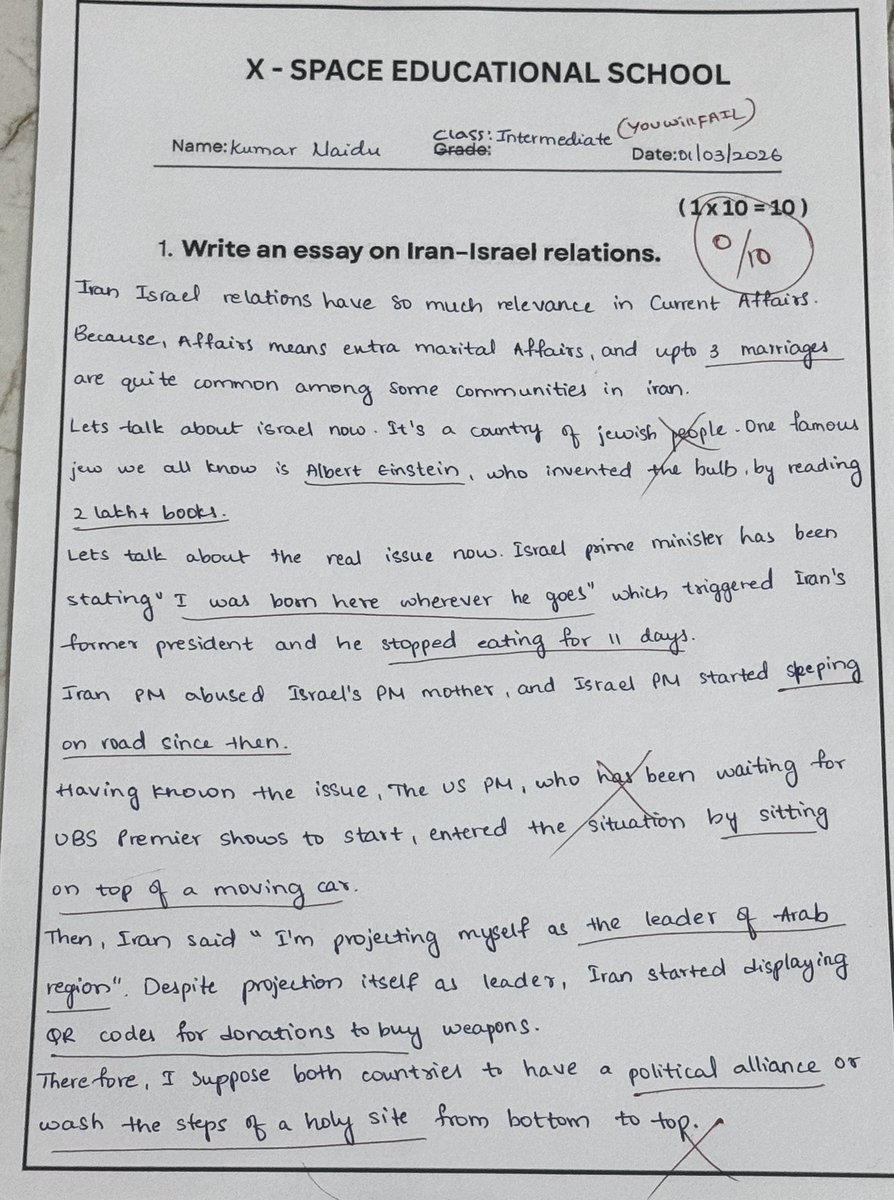 X - SPACE EDUCATIONAL SCHOOL
Name: Kumar Naidu Class: Intermediate (YOU WILL FAIL)
Grade: Date: 01/03/2026
(1 x 10 = 10)
0/10
1. Write an essay on Iran-Israel relations.
Iran Israel relations have so much relevance in Current Affairs.
Because, Affairs means entra marital Affairs, and upto 3 marriages
are quite common among some communities in iran.
Lets talk about israel now. It's a country of jewish people. One famous
jew we all know is Albert Einstein, who invented the bulb, by reading
2 lakh+ books.
Lets talk about the real issue now. Israel prime minister has been
stating "I was born here wherever he goes" which triggered Iran's
former president and he stopped eating for 11 days.
Iran PM abused Israel's PM mother, and Israel PM started sleeping
on road since then.
Having known the issue, The US PM, who has been waiting for
UBS Premier shows to start, entered the situation by sitting
on top of a moving car.
Then, Iran said " I'm projecting myself as the leader of Arab
region". Despite projection itself as leader, Iran started displaying
QR codes for donations to buy weapons.
Therefore, I suppose both countries to have a political alliance or
wash the steps of a holy site from bottom to top.